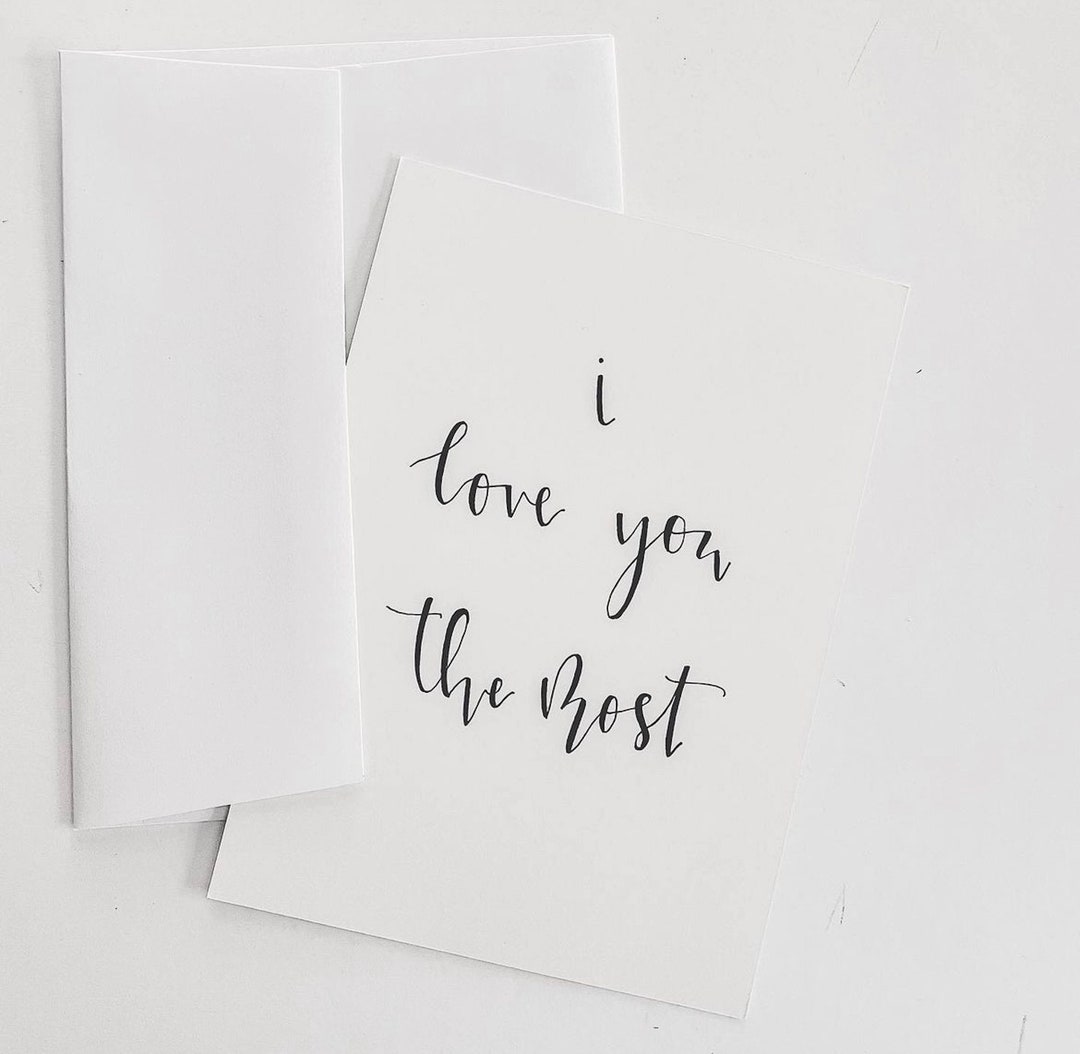 i
love you
the most